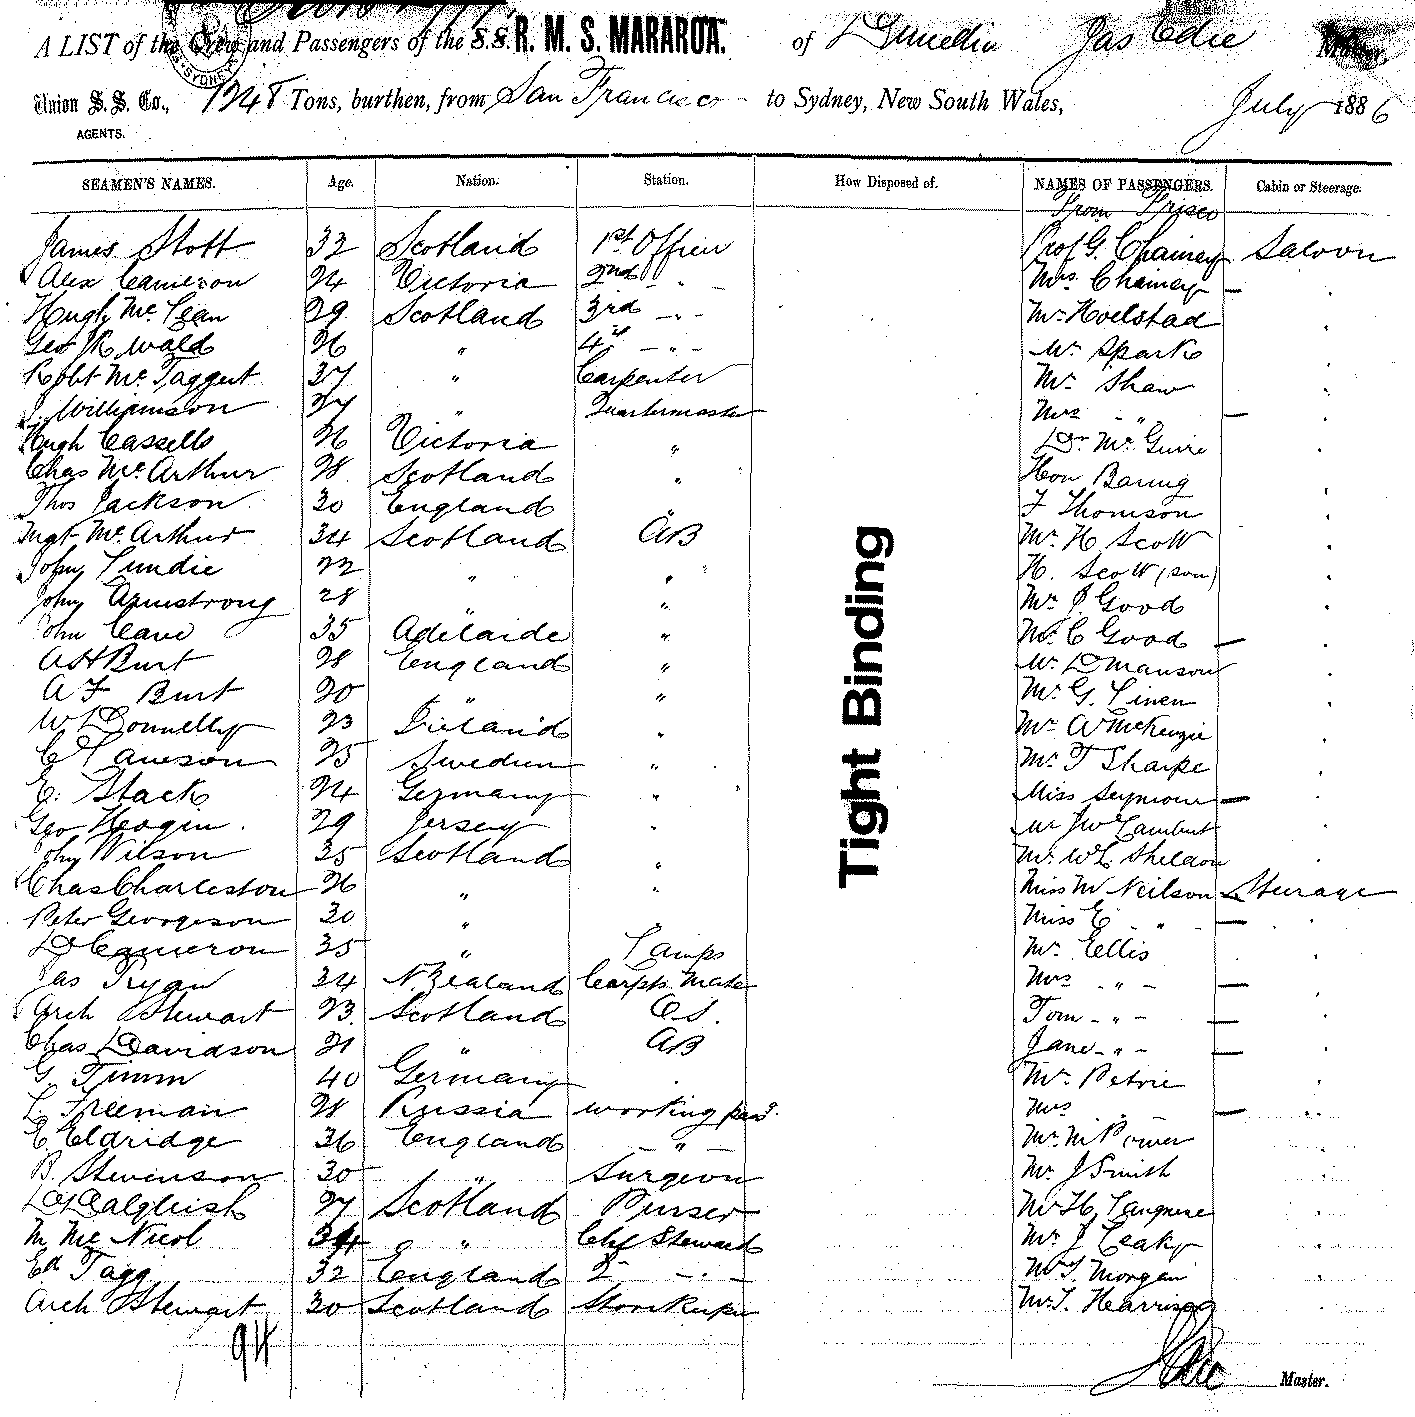 A LIST of the Crew and Passengers of the S.S. R. M. S. MARAROA. of Dunedin Jas Edie Master,
Union S. S. Co., 1248 Tons, burthen, from San Francisco to Sydney, New South Wales, July 1886
AGENTS.
SEAMEN'S NAMES. Age. Nation. Station. How Disposed of. NAMES OF PASSENGERS. Cabin or Steerage.
From Frisco
James Stott 32 Scotland 1st Officer Prof G. Chainey Saloon
Alex Cameron 24 Victoria 2nd " Mrs Chainey — "
Hugh McLean 29 Scotland 3rd - " - Mr Hoelstad "
Geo R Wald 26 " 4th - " - Mr Spark "
Robt McTaggert 37 " Carpenter Mr Shaw "
J. Williamson 27 " Quartermaster Mrs " — "
Hugh Cassells 26 Victoria " Dr McGuire "
Chas McArthur 28 Scotland " Hon Baring "
Thos Jackson 30 England " F Thomson "
Mgt McArthur 34 Scotland AB Mr H Scott "
John Lundie 22 " " H. Scott (son) "
John Armstrong 28 " " Mr J Good "
John Cave 35 Adelaide " Mr C Good — "
A H Burt 28 England " Mr D Manson "
A F Burt 20 " " Mr G. Linen "
W Donnelly 23 Ireland " Mr A McKenzie "
C Lawson 25 Sweden " Mr T Sharpe "
E. Stack 24 Germany " Miss Seymour — "
Geo Heagin 29 Jersey " Mr J W Lambert "
John Wilson 35 Scotland " Mr W L Sheldon "
Chas Charleston 26 " " Miss M Neilson Steerage
Peter Georgeson 30 " Miss E " — "
D Cameron 35 " Lamps Mr Ellis "
Jas Tryan 24 N. Zealand Carpts Mate Mrs " — "
Arch Stewart 23 Scotland O.S. Tom - " - — "
Chas Davidson 21 " AB Jane - " - — "
G. Timm 40 Germany " Mr Petrie "
L. Freeman 28 Russia working pass. Mrs " — "
E Eldridge 36 England " Mr M Power "
B. Stevenson 30 " Surgeon Mr J Smith "
D Dalgleish 27 Scotland Purser Mr H. Langrese "
M McNicol 34 " Chf Steward Mr J Leaky "
Ed Tagg 32 England 2 - " - Mr T. Morgan "
Arch Stewart 30 Scotland Storekeeper Mr T. Hearrison "
94
Master.
Tight Binding